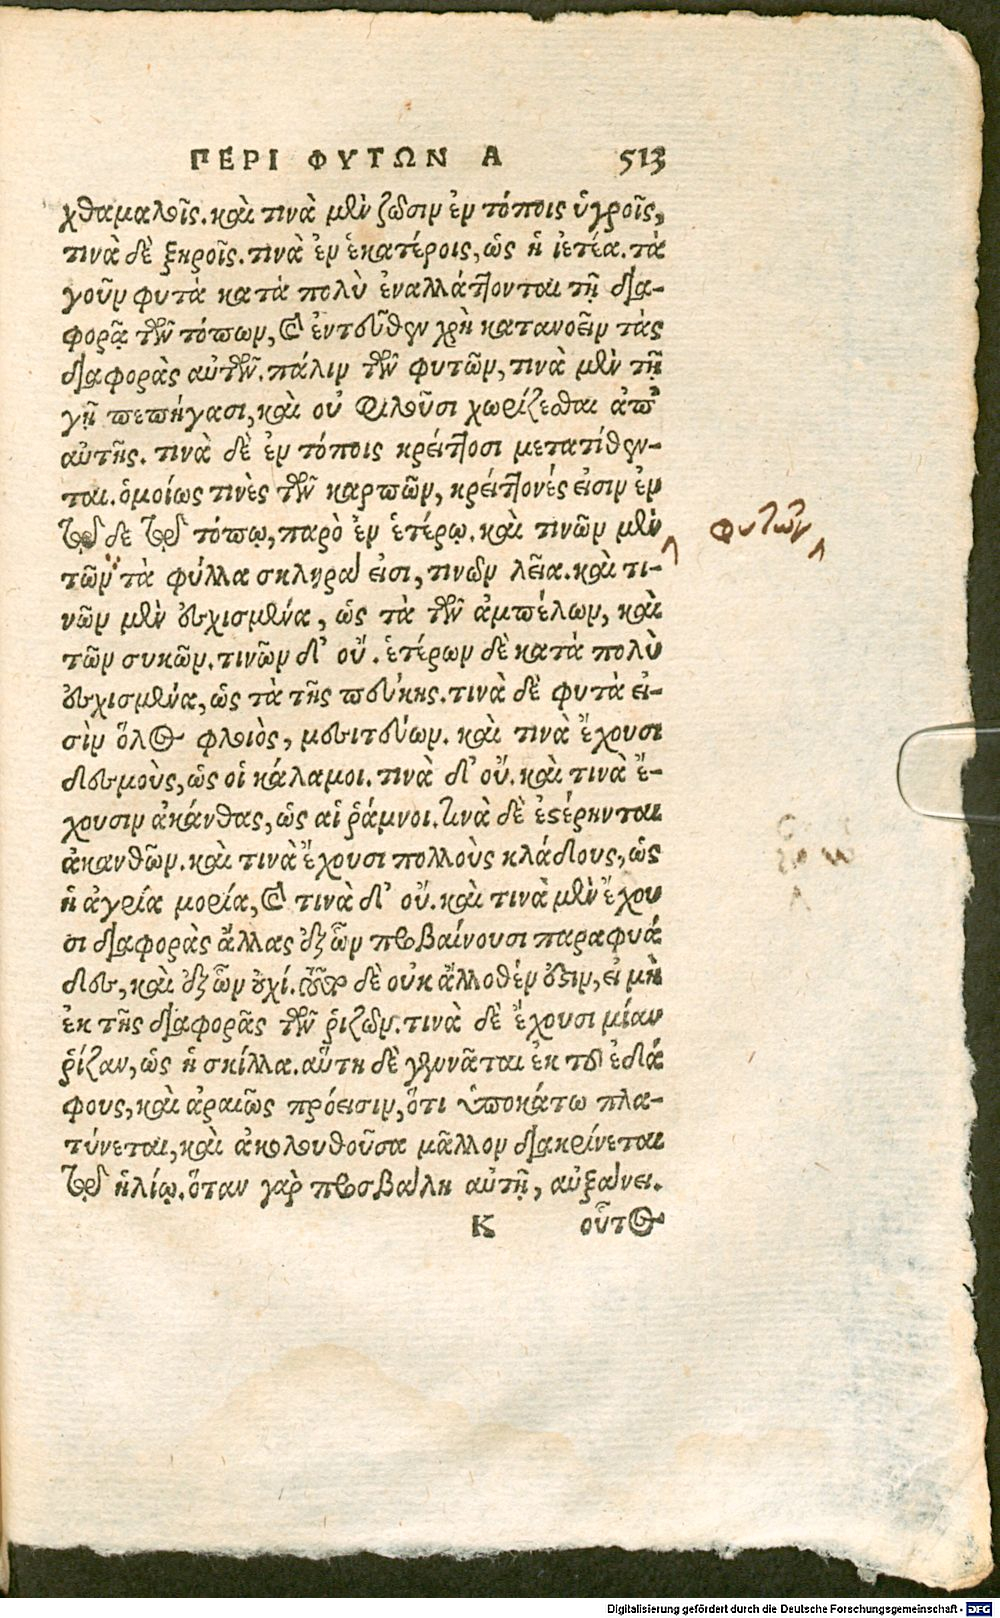 ΠΕΡΙ ΦΥΤΩΝ Α 513
χθαμαλοῖς. καὶ τινὰ μὲν ζῶσιν ἐν τόποις ὑγροῖς,
τινὰ δὲ ξηροῖς. τινὰ ἐν ἑκατέροις, ὡς ἡ ἰετέα. τὰ
γοῦν φυτὰ κατὰ πολὺ ἐναλλάττονται τῇ δια-
φορᾷ τῶν τόπων, καὶ ἐντεῦθεν χρὴ κατανοεῖν τὰς
διαφορὰς αὐτῶν. πάλιν τῶν φυτῶν, τινὰ μὲν τῇ
γῇ πεπήγασι, καὶ οὐ φιλοῦσι χωρίζεσθαι ἀπ'
αὐτῆς. τινὰ δὲ ἐν τόποις κρείττοσι μετατίθεν-
ται. ὁμοίως τινὲς τῶν καρπῶν, κρείττονές εἰσιν ἐν
τῷδε τῷ τόπῳ, παρὸ ἐν ἑτέρῳ. καὶ τινῶν μὲν
φυτῶν
τῶν τὰ φύλλα σκληρά εἰσι, τινῶν λεῖα. καὶ τι-
νῶν μὲν ἐσχισμένα, ὡς τὰ τῶν ἀμπέλων, καὶ
τῶν συκῶν. τινῶν δ' οὔ. ἑτέρων δὲ κατὰ πολὺ
ἐσχισμένα, ὡς τὰ τῆς πεύκης. τινὰ δὲ φυτὰ εἰ-
σὶν ὅλος φλοιὸς, μεσιτεύων. καὶ τινὰ ἔχουσι
δεσμοὺς, ὡς οἱ κάλαμοι. τινὰ δ' οὔ. καὶ τινὰ ἔ-
χουσιν ἀκάνθας, ὡς αἱ ῥάμνοι. τινὰ δὲ ἐστέρηνται
ἀκανθῶν. καὶ τινὰ ἔχουσι πολλοὺς κλάδους, ὡς
ἡ ἀγρία μορία, καὶ τινὰ δ' οὔ. καὶ τινὰ μὲν ἔχου
σι διαφορὰς ἄλλας ἐξ ὧν προβαίνουσι παραφυά
δες, καὶ ἐξ ὧν οὐχί. τοῦτο δὲ οὐκ ἄλλοθέν ἐστιν, εἰ μὴ
ἐκ τῆς διαφορᾶς τῶν ῥιζῶν. τινὰ δὲ ἔχουσι μίαν
ῥίζαν, ὡς ἡ σκίλλα. αὕτη δὲ γεννᾶται ἐκ τοῦ ἐδά
φους, καὶ ἀραιῶς πρόεισιν, ὅτι ὑποκάτω πλα-
τύνεται, καὶ ἀκολουθοῦσα μᾶλλον διακρίνεται
τῷ ἡλίῳ. ὅταν γὰρ προσβάλῃ αὐτῇ, αὐξάνει.
Κ οὗτος
Digitalisierung gefördert durch die Deutsche Forschungsgemeinschaft - DFG